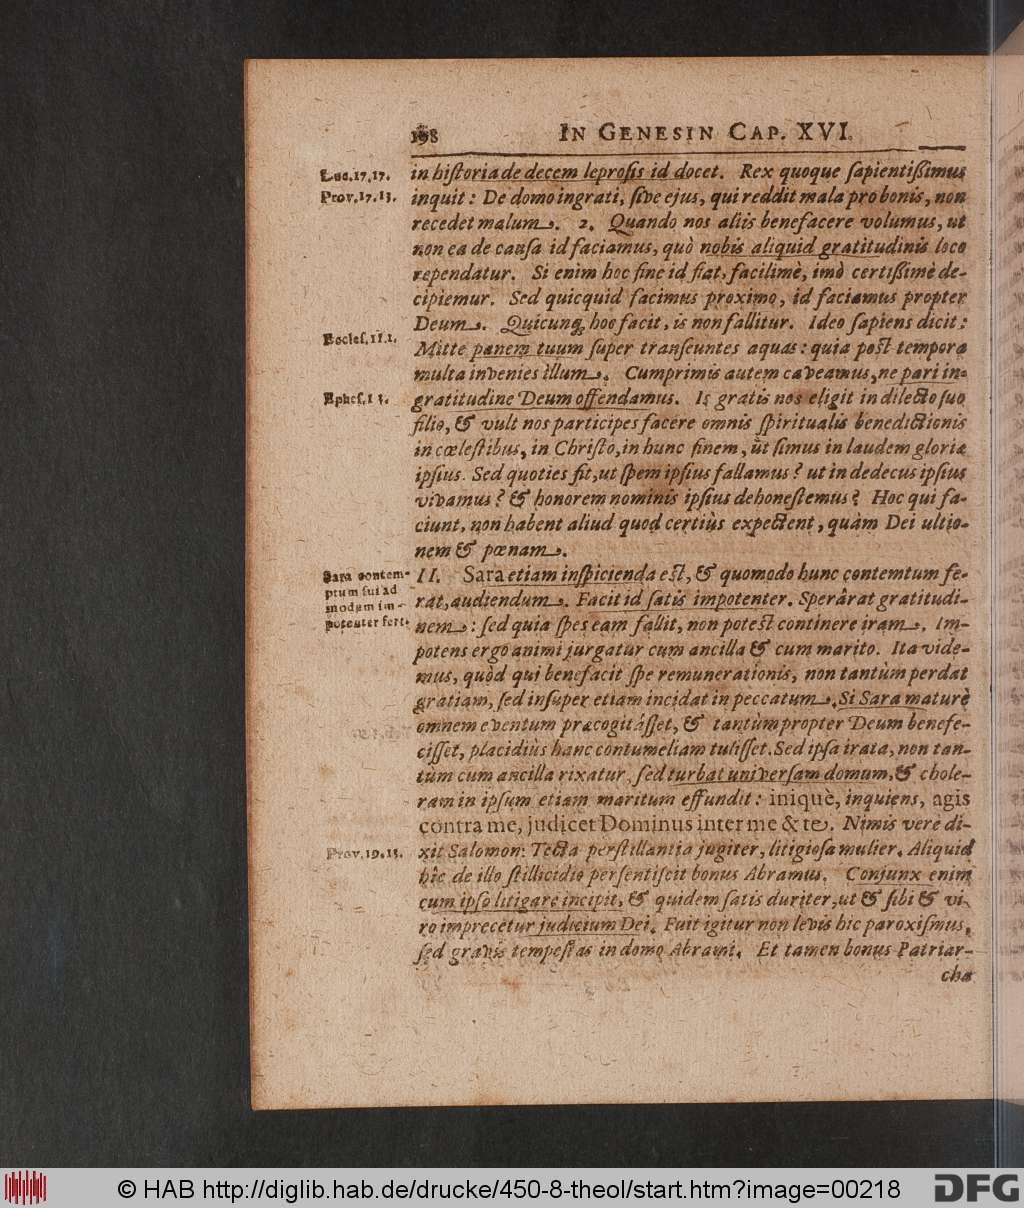 198 IN GENESIN CAP. XVI.
Luc. 17, 17. in historia de decem leprosis id docet. Rex quoque sapientißimus
Prov. 17. 13. inquit: De domo ingrati, sive ejus, qui reddit mala pro bonis, non
recedet malum. 2. Quando nos aliis benefacere volumus, ut
non ea de causa id faciamus, quò nobis aliquid gratitudinis loco
rependatur. Si enim hoc fine id fiat, facilimè, imò certißimè de-
cipiemur. Sed quicquid facimus proximo, id faciamus propter
Deum. Quicunq, hoc facit, is non fallitur. Ideo sapiens dicit:
Eccles. 11. 1. Mitte panem tuum super transeuntes aquas: quia post tempora
multa invenies illum. Cumprimis autem caveamus, ne pari in-
Ephes. 1 3. gratitudine Deum offendamus. Is gratis nos eligit in dilecto suo
filio, & vult nos participes facere omnis spiritualis benedictionis
in cœlestibus, in Christo, in hunc finem, ut simus in laudem gloriæ
ipsius. Sed quoties fit, ut spem ipsius fallamus? ut in dedecus ipsius
vivamus? & honorem nominis ipsius dehonestemus? Hoc qui fa-
ciunt, non habent aliud quod certiùs expectent, quàm Dei ultio-
nem & pœnam.
Sara contem- II. Sara etiam inspicienda est, & quomodo hunc contemtum fe-
ptum sui ad rat, audiendum. Facit id satis impotenter. Sperârat gratitudi-
modum im- nem: sed quia spes eam fallit, non potest continere iram. Im-
potenter fert. potens ergo animi jurgatur cum ancilla & cum marito. Ita vide-
mus, quòd qui benefacit spe remunerationis, non tantùm perdat
gratiam, sed insuper etiam incidat in peccatum. Si Sara maturè
omnem eventum præcogitásset, & tantùm propter Deum benefe-
cisset, placidiùs hanc contumeliam tulisset. Sed ipsa irata, non tan-
tùm cum ancilla rixatur, sed turbat universam domum, & chole-
ram in ipsum etiam maritum effundit: iniquè, inquiens, agis
contra me, judicet Dominus inter me & te. Nimis vere di-
Prov. 19. 13. xit Salomon: Tecta perstillantia jugiter, litigiosa mulier. Aliquid
hîc de illo stillicidio persentiscit bonus Abramus. Conjunx enim
cum ipso litigare incipit, & quidem satis duriter, ut & sibi & vi-
ro imprecetur judicium Dei. Fuit igitur non levis hic paroxismus,
sed gravis tempestas in domo Abrami. Et tamen bonus Patriar-
cha
© HAB http://diglib.hab.de/drucke/450-8-theol/start.htm?image=00218
DFG